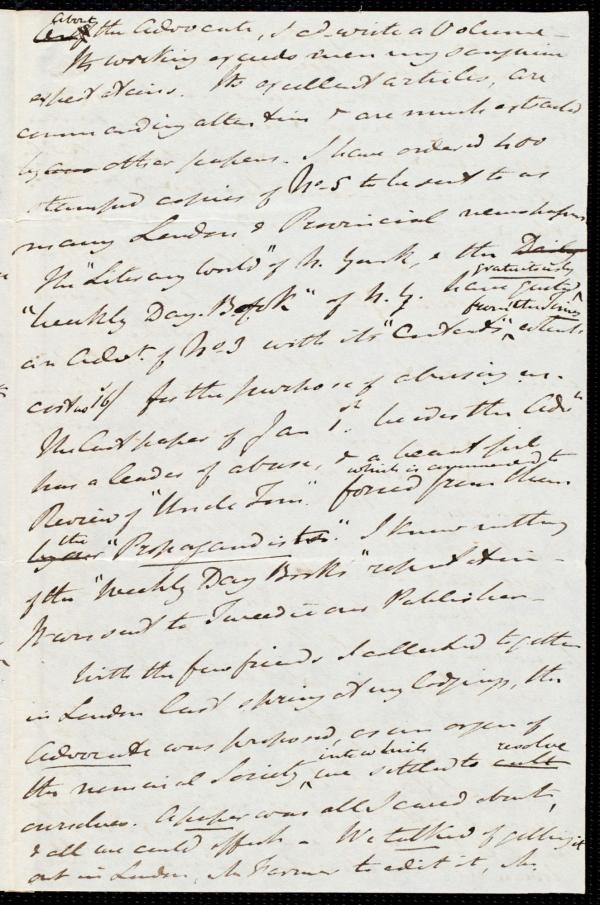 About
the Advocate, I cd write a volume –
Its working exceeds even my sanguine
expectations. Its excellent articles, are
commanding attention & are much extracted
by other papers. I have ordered 400
stamped copies of No 5 to be sent to as
many London & Provincial newspapers
The "Literary World" of N. York, & the Daily
gratuitously
"Weekly Day-Book" of N. Y. have
from the Times
an Advt. of No 3 with its "Contents",
cost us 16/ for the purpose of abusing us.
The last paper of Jan 1st. besides the Adt
has a leader of abuse, & a beautiful
which is announced to
Review of "Uncle Tom." forced from them
the
by "Propagandists." I know nothing
of the "Weekly Day Book's" reputation –
It was sent to Tweedie our Publisher –
With the few friends I collected together
in London last spring at my lodgings, the
Advocate was proposed, as an organ of
into which resolve
the remedial Society, we settled to
ourselves. A paper was all I cared about,
& all we could effect – We talked of getting it
out in London, Mr Farmer to edit it, Mr